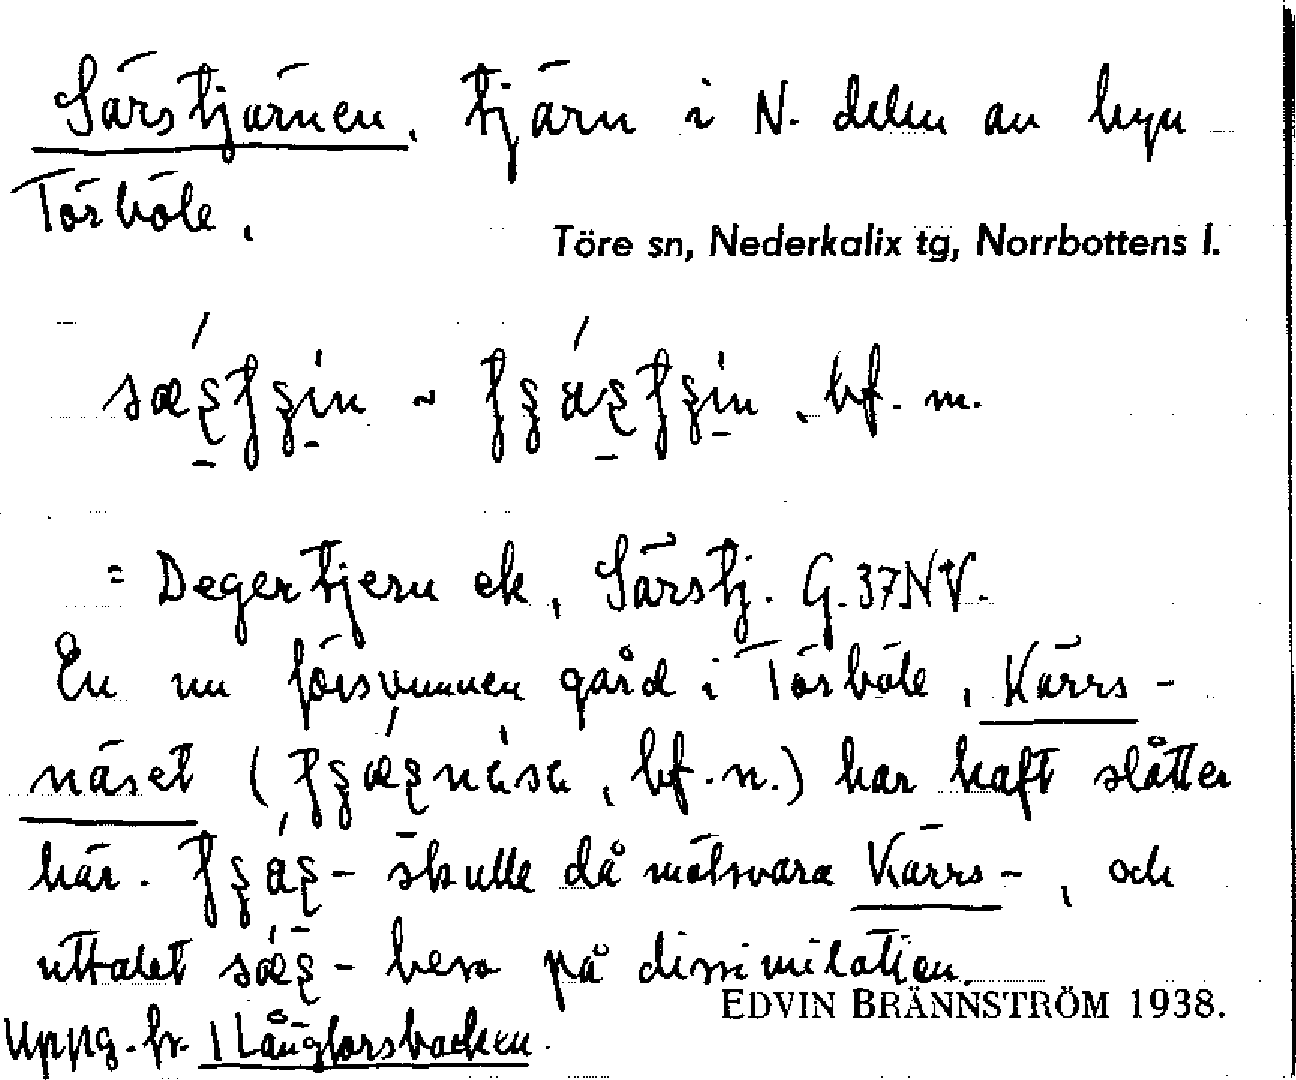 Särstjärnen, tjärn i N. delen av byn
Törböle.
Töre sn, Nederkalix tg, Norrbottens l.
bf. m.
= Degertjern ek, Särstj. G. 37NV.
En nu försvunnen gård i Törböle, Kärrs-
näset ( , bf. n.) har haft slåtter
här. - skulle då motsvara Kärrs-, och
uttalet - bero på dissimilation.
EDVIN BRÄNNSTRÖM 1938.
Uppg. fr. Långforsbacken.